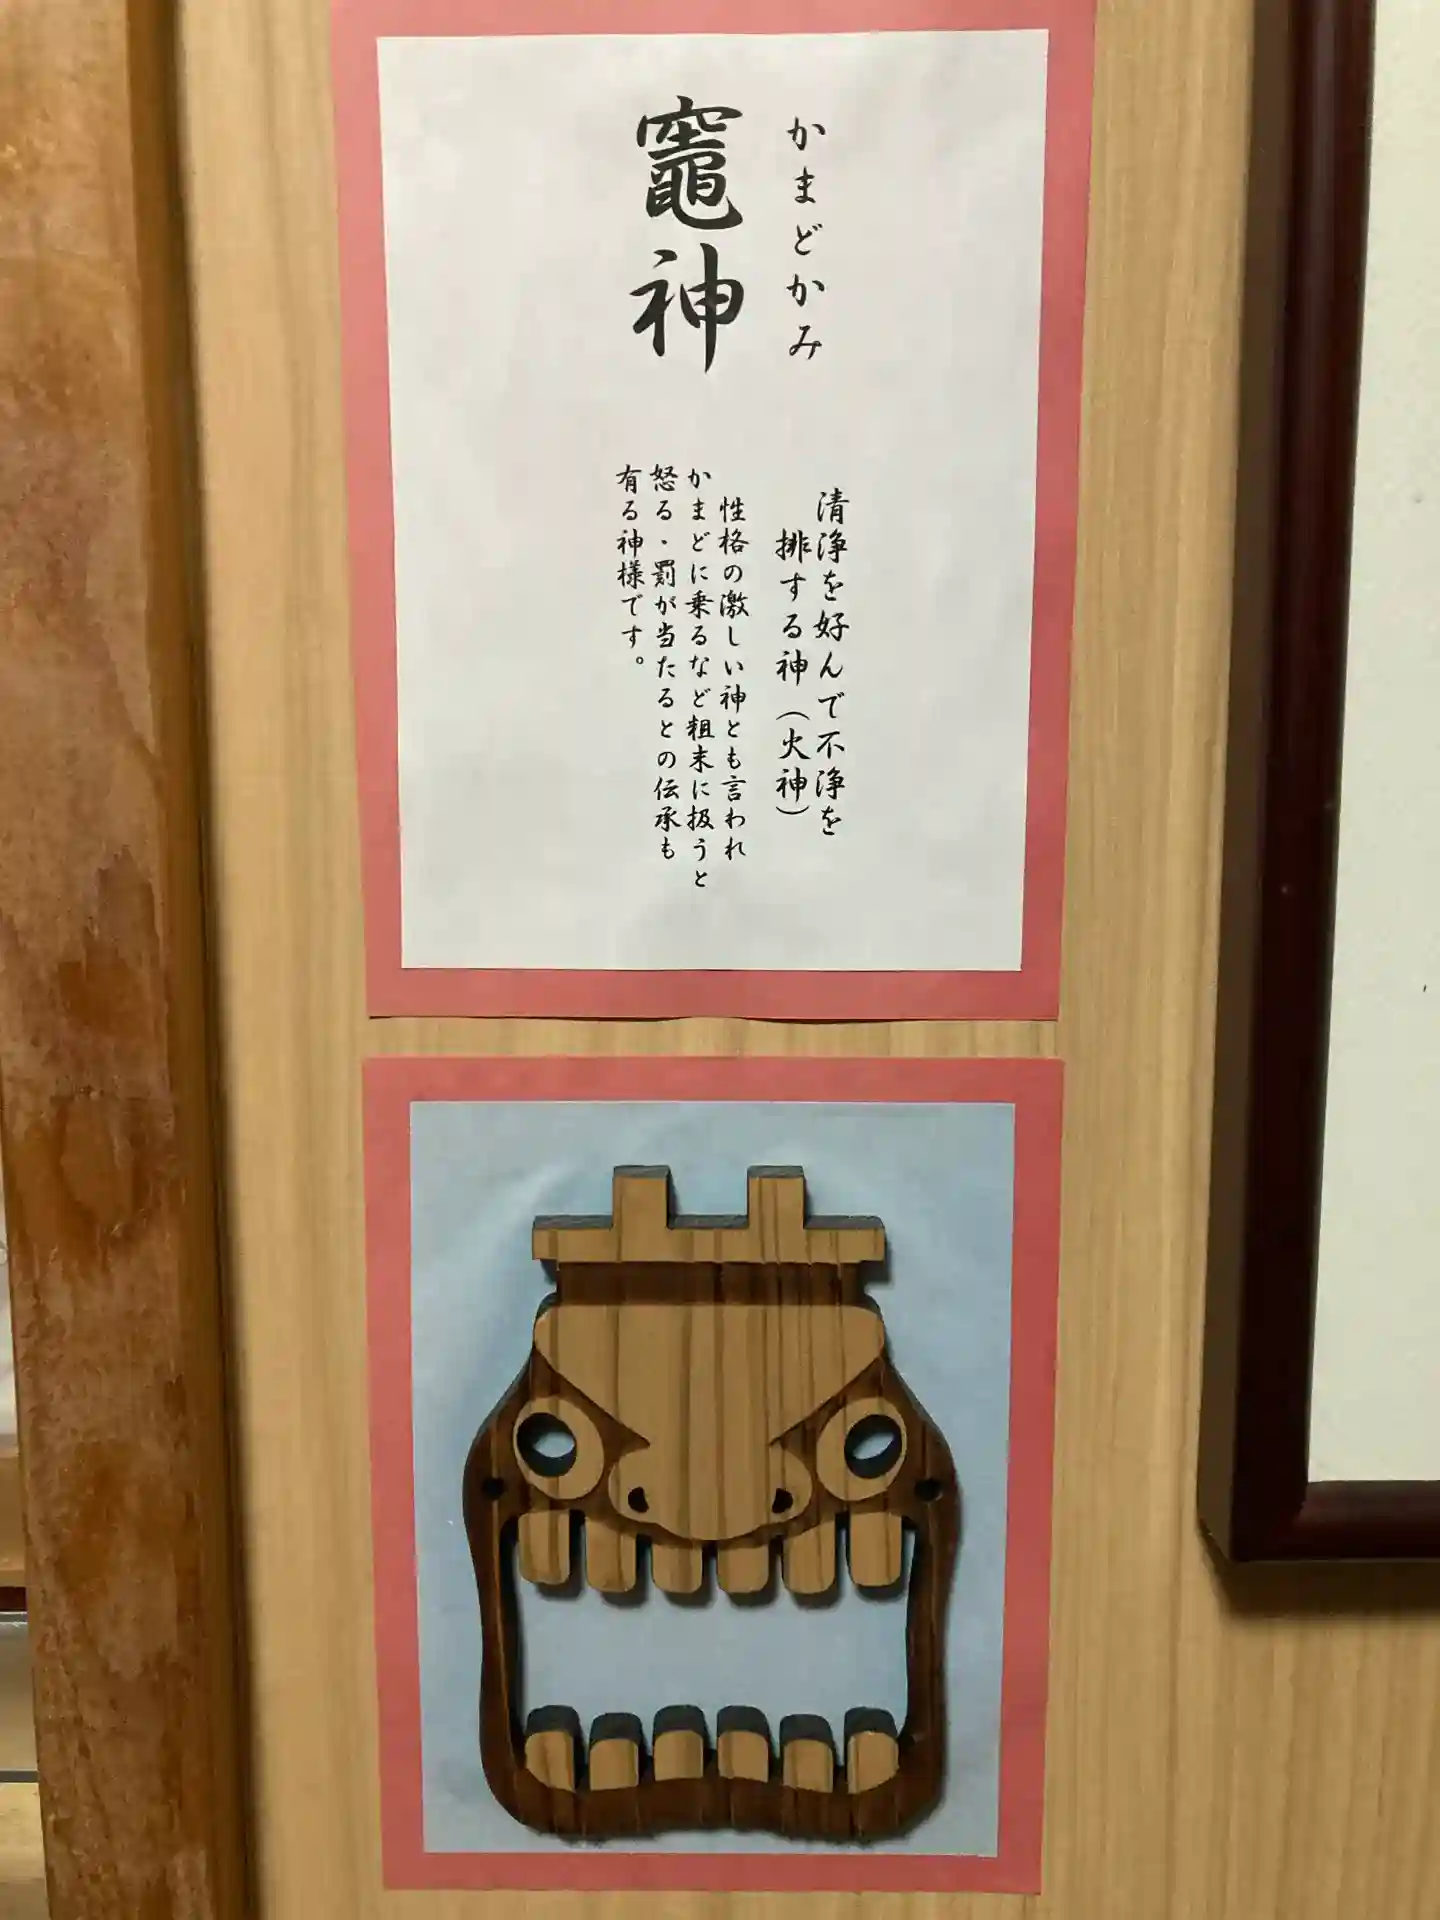 かまどかみ
竈神
清浄を好んで不浄を
排する神（火神）
性格の激しい神とも言われ
かまどに乗るなど粗末に扱うと
怒る・罰が当たるとの伝承も
有る神様です。